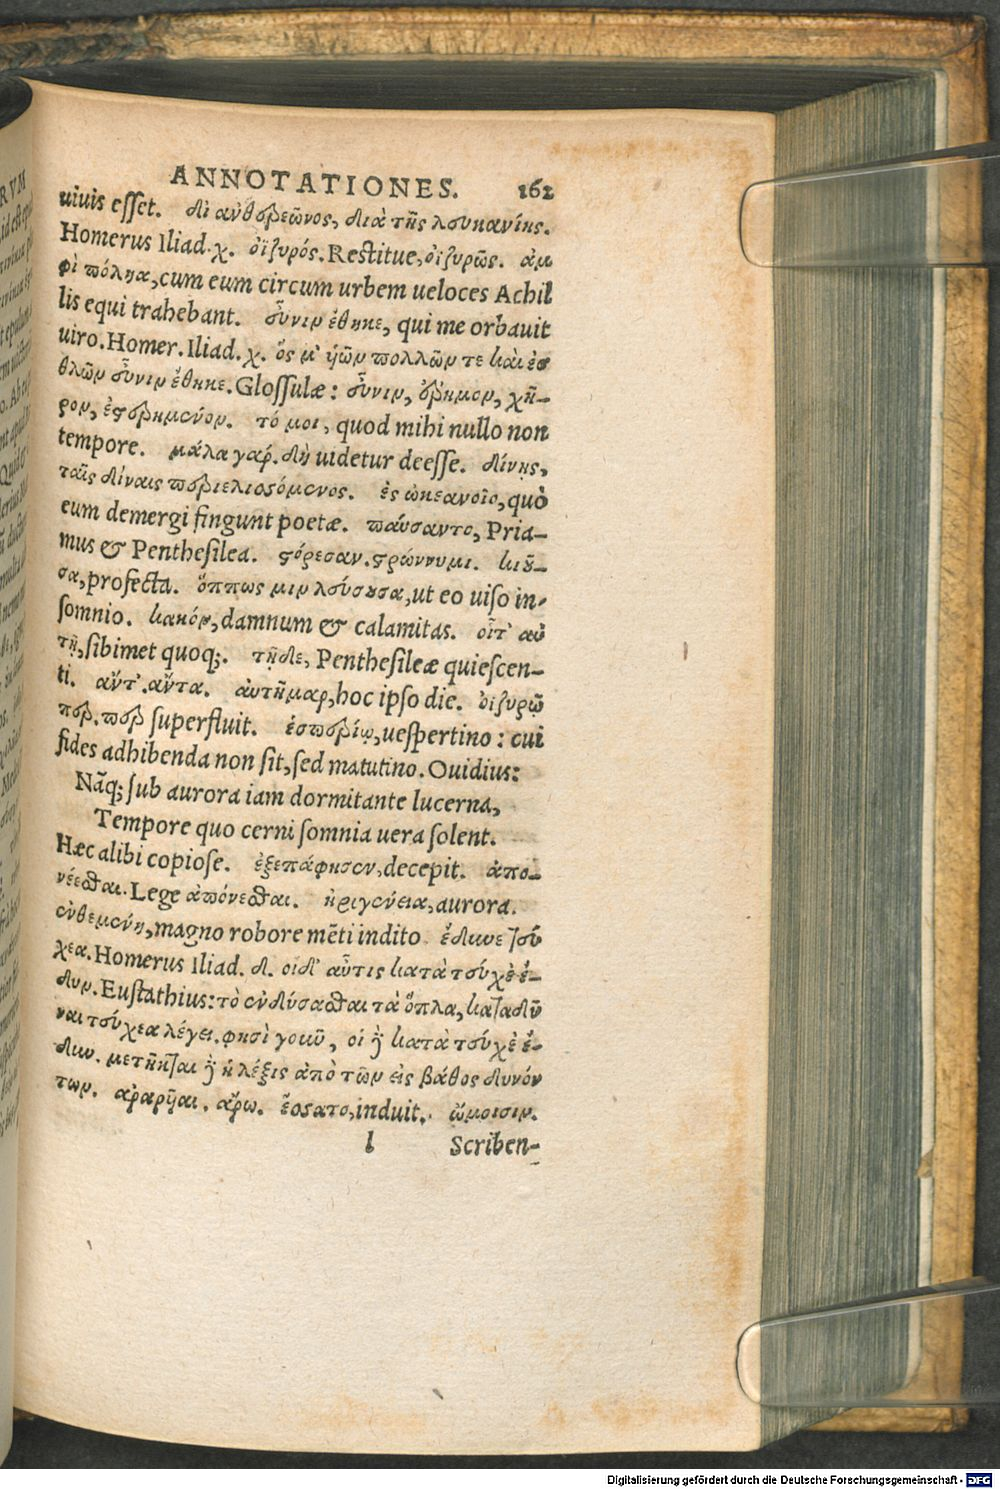 ANNOTATIONES. 161
uiuis esset. δι' ἀνθερεῶνος, διὰ τῆς λευκανίης.
Homerus Iliad. χ. ὀϊζυρός. Restitue, ὀϊζυρῶς. ἀμ
φὶ πόληα, cum eum circum urbem ueloces Achil
lis equi trahebant. εὖνιν ἔθηκε, qui me orbauit
uiro. Homer. Iliad. χ. ὅς μ' υἱῶν πολλῶν τε καὶ ἐσ
θλῶν εὖνιν ἔθηκε. Glossulæ: εὖνιν, ἔρημον, χῆ-
ρον, ἐστερημένον. τό μοι, quod mihi nullo non
tempore. μάλα γάρ. δὴ uidetur deesse. δίνῃς,
ταῖς δίναις περιελισσόμενος. ἐς ὠκεανοῖο, quò
eum demergi fingunt poetæ. παύσαντο, Pria-
mus & Penthesilea. στόρεσαν. στρώννυμι. κιοῦ-
σα, profecta. ὅππως μιν λεύσουσα, ut eo uiso in-
somnio. κακόν, damnum & calamitas. οἷτ' αὐ
τῇ, sibimet quoq;. τῇδε, Penthesileæ quiescen-
ti. ἄντ'. ἄντα. αὐτῆμαρ, hoc ipso die. ὀϊζυρῷ
περ. περ superfluit. ἑσπερίῳ, uespertino: cui
fides adhibenda non sit, sed matutino. Ouidius:
Nãq; sub aurora iam dormitante lucerna,
Tempore quo cerni somnia uera solent.
Hæc alibi copiose. ἐξεπάφησεν, decepit. ἀπο-
νέεσθαι. Lege ἀπόνεσθαι. ἠριγένεια, aurora.
ἐνθεμένη, magno robore mẽti indito. ἔδυνε τεύ
χεα. Homerus Iliad. δ. οἱ δ' αὖτις κατὰ τεύχε' ἔ-
δυν. Eustathius: τὸ ἐνδύσασθαι τὰ ὅπλα, καταδῦ
ναι τεύχεα λέγει. φησὶ γοῦν, οἱ δὲ κατὰ τεύχε' ἔ-
δυν. μετῆκται δὲ ἡ λέξις ἀπὸ τῶν εἰς βάθος δυνόν
των. ἀραρῆαι. ἄρω. ἕσσατο, induit. ὤμοισιν.
l Scriben-
Digitalisierung gefördert durch die Deutsche Forschungsgemeinschaft - DFG